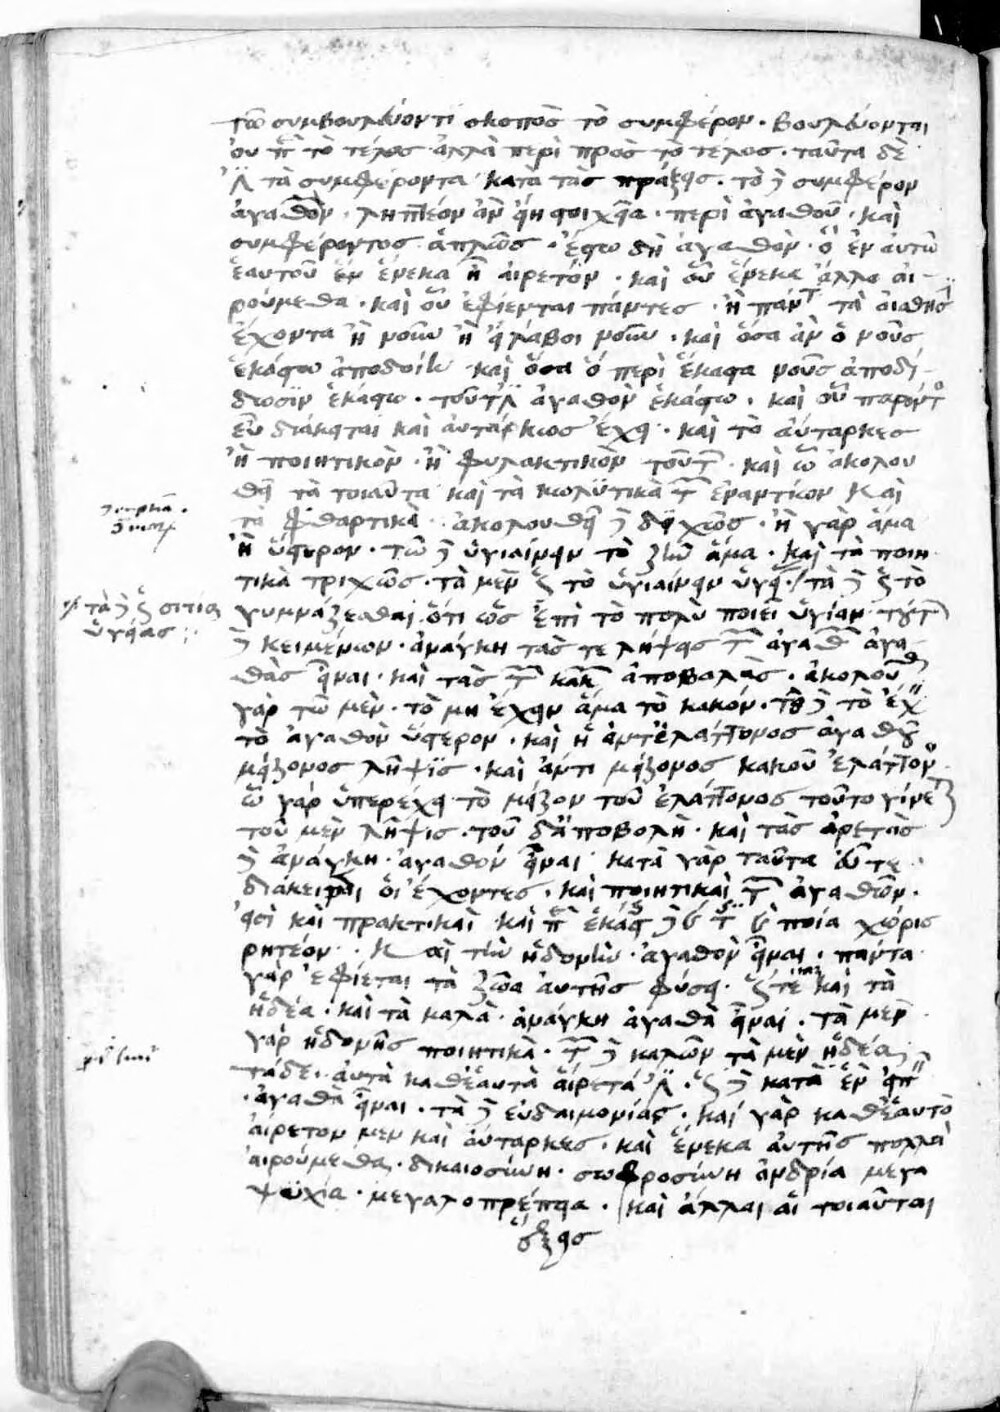 τῶ συμβουλεύοντι σκοπὸς τὸ συμφέρον. βουλεύονται
οὐ περὶ τὸ τέλος ἀλλὰ περὶ πρὸς τὸ τέλος. ταῦτα δὲ
ἐστὶ τὰ συμφέροντα κατὰ τὰς πράξεις. τὸ δὲ συμφέρον
ἀγαθόν. ληπτέον ἂν εἴη στοιχεῖα. περὶ ἀγαθοῦ. καὶ
συμφέροντος ἁπλῶς. ἔστω δὴ ἀγαθὸν. ὃ ἐν αυτῶ
ἑαυτοῦ ἕνεκα ἢ αἱρετόν. καὶ οὗ ἕνεκα ἄλλο αἱ-
ρούμεθα. καὶ οὗ ἐφίενται πάντες. ἢ πάντα τὰ αἴσθησιν
ἔχοντα ἢ νοῦν ἢ εἰ λάβοι νοῦν. καὶ ὅσα ἂν ὁ νοῦς
ἑκάστω ἀποδοίη. καὶ ὅσα ὁ περὶ ἕκαστα νοῦς ἀποδί-
δωσϊν ἑκάστω. τοῦτ' ἐστὶν ἀγαθὸν ἑκάστω. καὶ οὗ παρόντος
εὖ διάκειται καὶ αὐτάρκως ἔχει. καὶ τὸ αὔταρκες
ἢ ποιητικὸν. ἢ φυλακτικὸν τούτων. καὶ ὧ ἀκολου
θεῖ τὰ τοιαῦτα καὶ τὰ κωλϋτικὰ τῶν ἐναντίων Καὶ
τὰ φθαρτικὰ. ἀκολουθεῖ δὲ διχῶς. ἢ γὰρ ἅμα
ἢ ὕστερον. τῶ δὲ ὑγιαίνειν τὸ ζῆν ἅμα. καὶ τὰ ποιη
τικὰ τριχῶς. τὰ μὲν ὡς τὸ ὑγιαίνειν ὑγιείας. τὰ δὲ ὡς τὸ
τὰ δὲ ὡς σιτία
ὑγείας
γυμνάζεσθαι. ὅτι ὡς ἐπὶ τὸ πολὺ ποιεῖ ὑγίειαν. τούτων
δὲ κειμένων. ἀνάγκη τάς τε λήψεις τῶν ἀγαθῶν ἀγα-
θὰς εἶναι. καὶ τὰς τῶν κακῶν ἀποβολὰς. ἀκολουθεῖ
γὰρ τῶ μὲν. τὸ μὴ ἔχειν ἅμα τὸ κακόν. τῶ δὲ τὸ ἔχειν
τὸ ἀγαθὸν ὕστερον. καὶ ἡ ἀντ' ἐλάττονος ἀγαθοῦ
μείζονος λῆψϊς. καὶ ἀντὶ μείζονος κακοῦ ἐλάττονος.
ὧ γὰρ ὑπερέχει τὸ μεῖζον τοῦ ἐλάττονος τοῦτο γίνεται
τοῦ μὲν λῆψις. τοῦ δ' ἀποβολὴ. καὶ τὰς ἀρετὰς
δὲ ἀνάγκη. ἀγαθὸν εἶναι. κατὰ γὰρ ταῦτα εὖ τε
διάκεινται οἱ ἔχοντες. καὶ ποιητικαὶ τῶν ἀγαθῶν.
εἰσὶ καὶ πρακτικαὶ. καὶ περὶ ἑκάστης δὲ καὶ τίς καὶ ποία χωρὶς
ρητέον. Καὶ τὴν ἡδονὴν. ἀγαθὸν εἶναι. πάντα
γὰρ ἐφίεται τὰ ζῶα αὐτῆς φύσει. ὥστε καὶ τὰ
ἡδέα. καὶ τὰ καλὰ. ἀνάγκη ἀγαθὰ εἶναι. τὰ μὲν
γὰρ ἡδονῆς ποιητικὰ. τῶν δὲ καλῶν τὰ μὲν ἡδέα
τὰ δὲ. αὐτὰ καθ' ἑαυτὰ αἱρετά ἐστιν. ὡς δὲ κατὰ ἓν εἰπεῖν
ἀγαθὰ εἶναι. τὰ δὲ εὐδαιμονίας. καὶ γὰρ καθ' ἑαυτὸ
αἱρετον μὲν καὶ αὔταρκες. καὶ ἕνεκα αὐτῆς πολλὰ
αἱρούμεθα. δικαιοσύνη. σωφροσύνη ἀνδρία μεγα
ψϋχία. μεγαλοπρέπεια. καὶ ἀλλαι αἱ τοιαῦται
ἕξεις